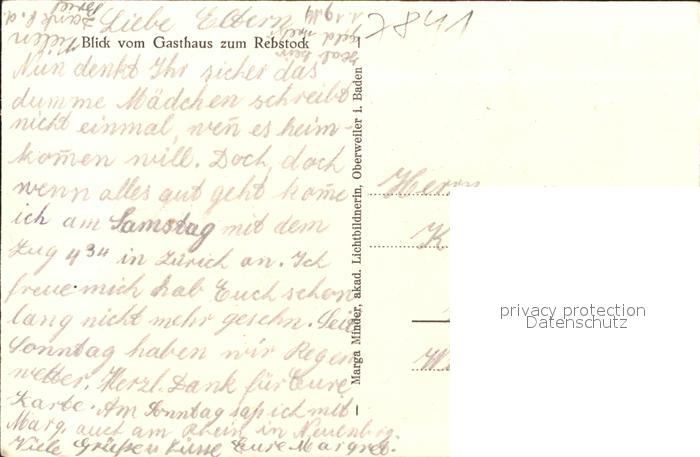 Liebe Eltern
Blick vom Gasthaus zum Rebstock
Nun denkt Ihr sicher das
dumme Mädchen schreibt
nicht einmal, weñ es heim-
kom̃en will. Doch, doch
wenn alles gut geht kom̃e
ich am Samstag mit dem
Zug 4 34 in Zürich an. Ich
freue mich hab Euch schon
lang nicht mehr gesehn. Seit
Sonntag haben wir Regen
wetter. Herzl. Dank für Eure
Karte. Am Sonntag saß ich mit
Marg. auch am Rhein in Neuenburg.
Viele Grüße u. Küsse Eure Margret.
Vielen
Dank f. d.
Brief
Marga Minder, akad. Lichtbildnerin, Oberweiler i. Baden
Herrn
K
W
privacy protection
Datenschutz